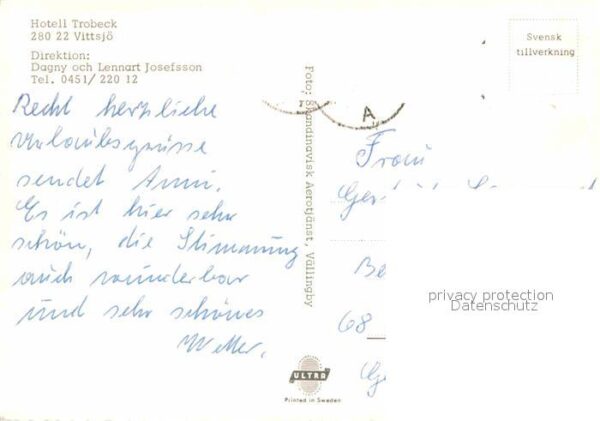 Hotell Trobeck
280 22 Vittsjö
Direktion:
Dagny och Lennart Josefsson
Tel. 0451/220 12
Svensk
tillverkning
Recht herzliche
Urlaubsgrüsse
sendet Anni.
Es ist hier sehr
schön, die Stimmung
auch wunderbar
und sehr schönes
Wetter.
Foto: Skandinavisk Aerotjänst, Vällingby
A
Frau
68
privacy protection
Datenschutz
ULTRA
Printed in Sweden